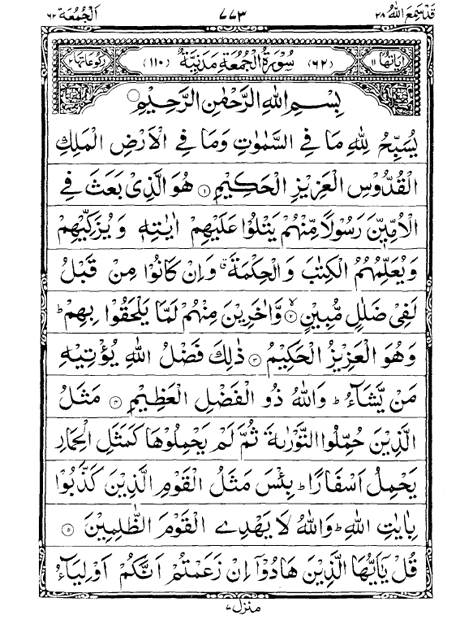 قَدْ سَمِعَ اللّٰهُ ٢٨ ٧٧٣ اَلْجُمُعَة ٦٢
اٰيَاتُهَا ١١ (٦٢) سُوْرَةُ الْجُمُعَةِ مَدَنِيَّةٌ (١١٠) رُكُوْعَاتُهَا ٢
بِسْمِ اللّٰهِ الرَّحْمٰنِ الرَّحِيْمِ
يُسَبِّحُ لِلّٰهِ مَا فِي السَّمٰوٰتِ وَمَا فِي الْاَرْضِ الْمَلِكِ
الْقُدُّوْسِ الْعَزِيْزِ الْحَكِيْمِ ١ هُوَ الَّذِيْ بَعَثَ فِي
الْاُمِّيّٖنَ رَسُوْلًا مِّنْهُمْ يَتْلُوْا عَلَيْهِمْ اٰيٰتِهٖ وَيُزَكِّيْهِمْ
وَيُعَلِّمُهُمُ الْكِتٰبَ وَالْحِكْمَةَ ۗ وَاِنْ كَانُوْا مِنْ قَبْلُ
لَفِيْ ضَلٰلٍ مُّبِيْنٍ ٢ وَّاٰخَرِيْنَ مِنْهُمْ لَمَّا يَلْحَقُوْا بِهِمْ ؕ
وَهُوَ الْعَزِيْزُ الْحَكِيْمُ ٣ ذٰلِكَ فَضْلُ اللّٰهِ يُؤْتِيْهِ
مَنْ يَّشَآءُ ؕ وَاللّٰهُ ذُو الْفَضْلِ الْعَظِيْمِ ٤ مَثَلُ
الَّذِيْنَ حُمِّلُوا التَّوْرٰىةَ ثُمَّ لَمْ يَحْمِلُوْهَا كَمَثَلِ الْحِمَارِ
يَحْمِلُ اَسْفَارًا ؕ بِئْسَ مَثَلُ الْقَوْمِ الَّذِيْنَ كَذَّبُوْا
بِاٰيٰتِ اللّٰهِ ؕ وَاللّٰهُ لَا يَهْدِي الْقَوْمَ الظّٰلِمِيْنَ ٥
قُلْ يٰٓاَيُّهَا الَّذِيْنَ هَادُوْٓا اِنْ زَعَمْتُمْ اَنَّكُمْ اَوْلِيَآءُ
منزل ٧